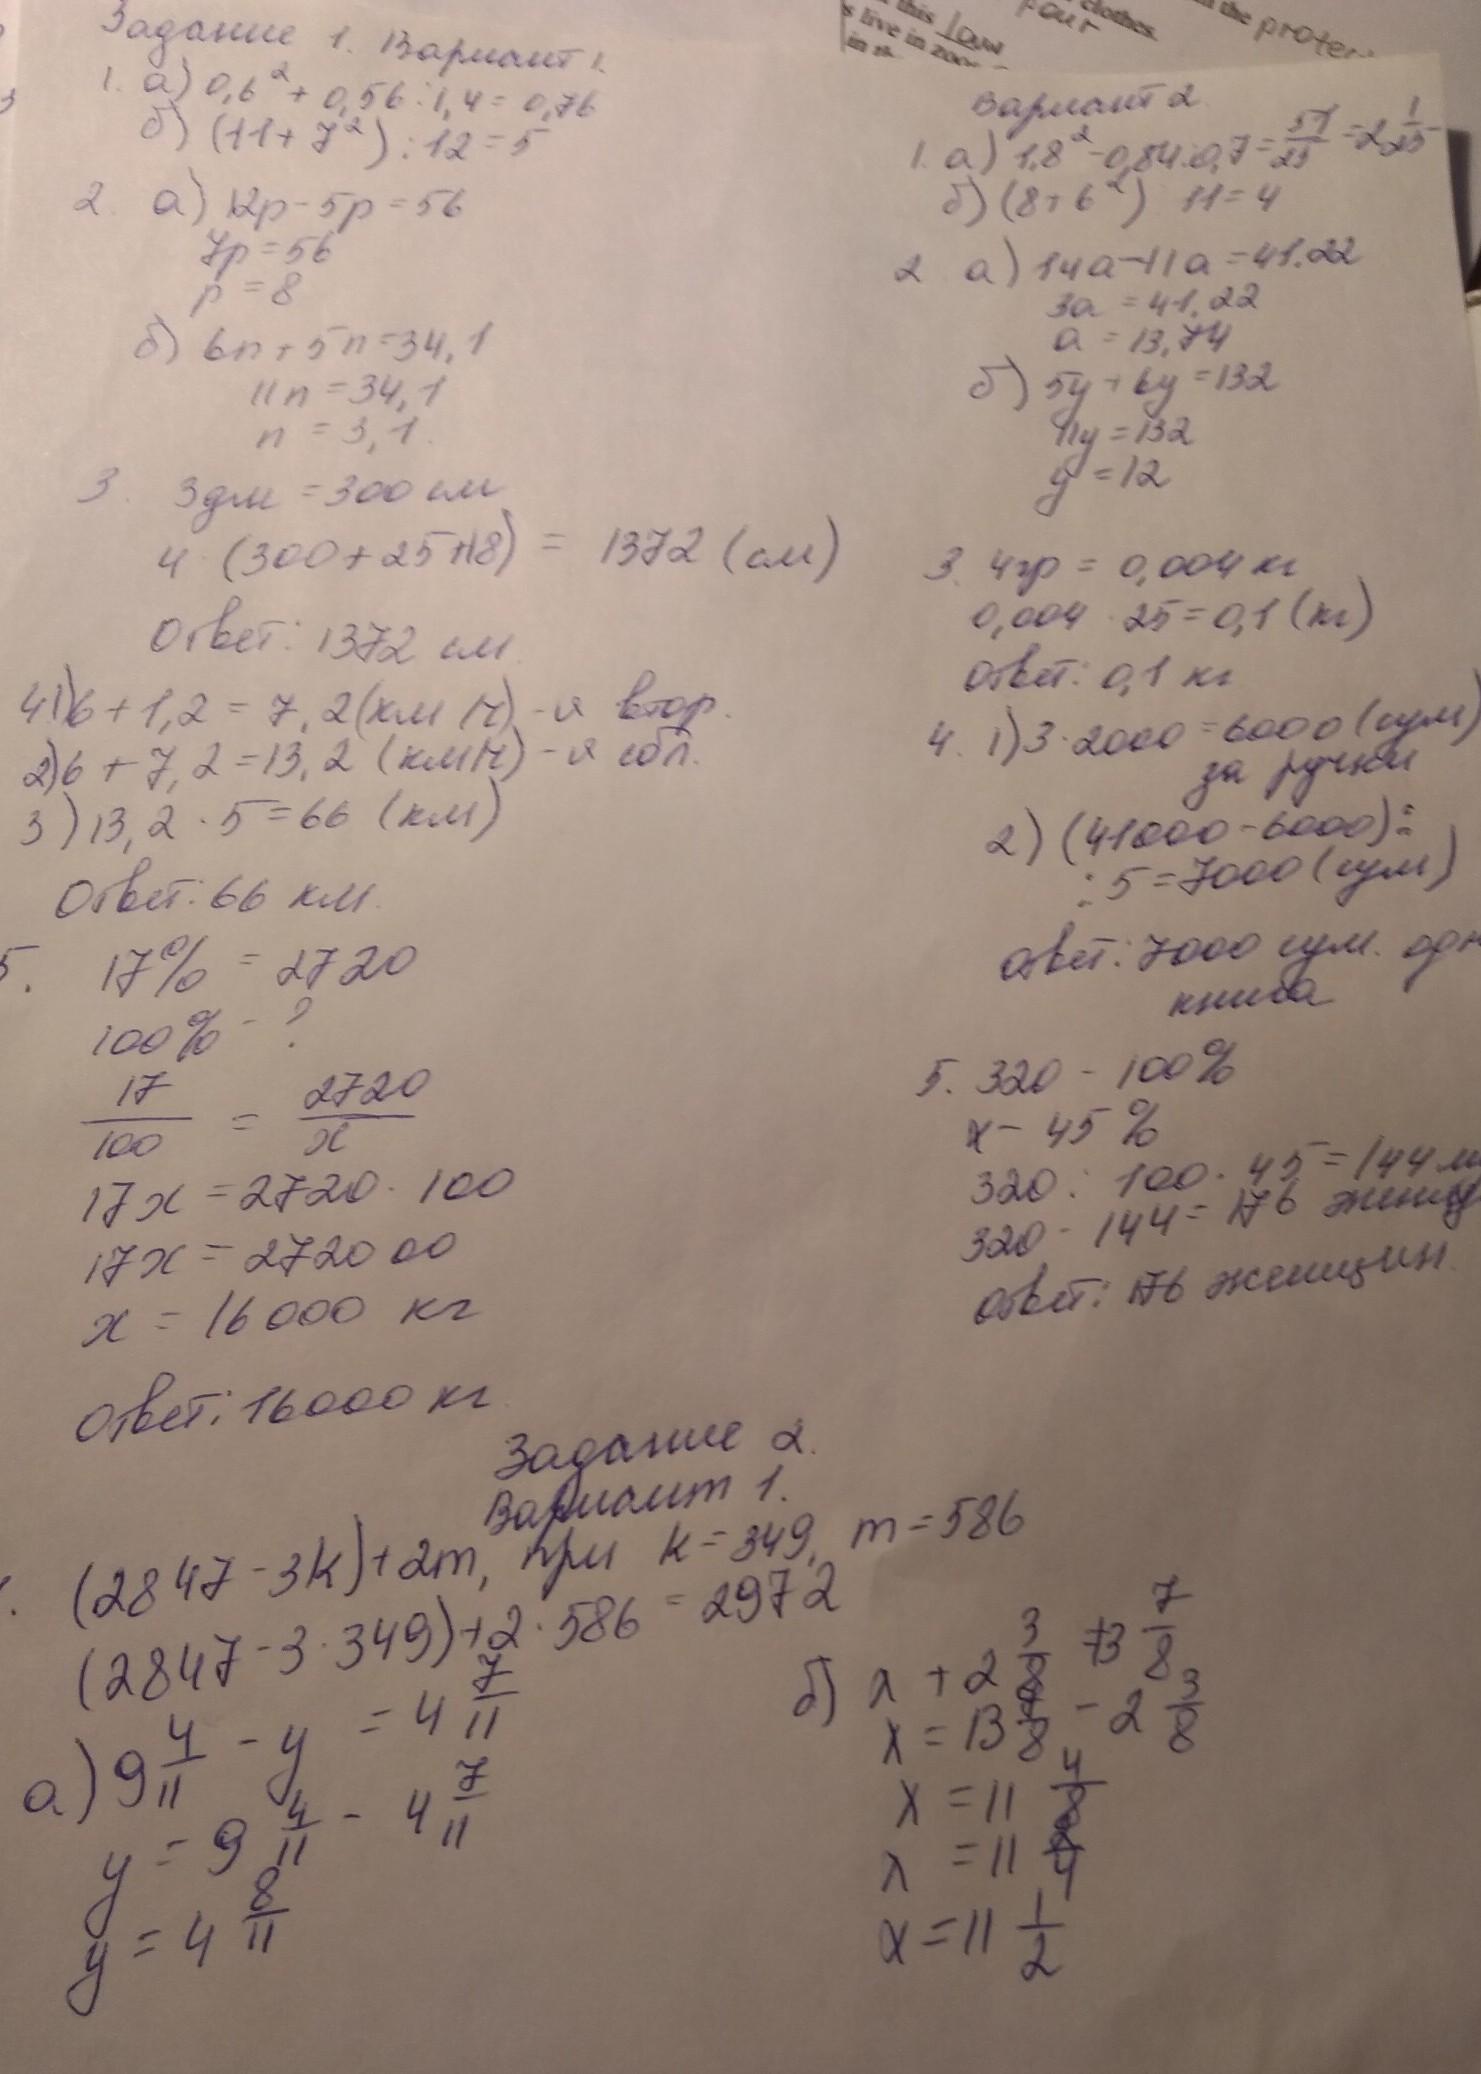 Задание 1. Вариант 1.
1. а) 0,6² + 0,56 : 1,4 = 0,76
б) (11 + 7²) : 12 = 5
2. а) 12p - 5p = 56
7p = 56
p = 8
б) 6n + 5n = 34,1
11n = 34,1
n = 3,1.
3. 3дм = 300 см
4 · (300 + 25 + 18) = 1372 (см)
Ответ: 1372 см
4 1) 6 + 1,2 = 7,2 (км/ч) - v втор.
2) 6 + 7,2 = 13,2 (км/ч) - v сбл.
3) 13,2 · 5 = 66 (км)
Ответ: 66 км.
5. 17% = 2720
100% - ?
17/100 = 2720/x
17x = 2720 · 100
17x = 272000
x = 16000 кг
Ответ: 16000 кг
Вариант 2
1. а) 1,8² - 0,84 : 0,7 = 51/25 = 2 1/25
б) (8 + 6²) 11 = 4
2 а) 14a - 11a = 41.22
3a = 41,22
a = 13,74
б) 5y + 6y = 132
11y = 132
y = 12
3. 4гр = 0,004 кг
0,004 · 25 = 0,1 (кг)
Ответ: 0,1 кг
4. 1) 3 · 2000 = 6000 (сум)
за ручки
2) (41000 - 6000) :
: 5 = 7000 (сум)
Ответ: 7000 сум.
книга
5. 320 - 100%
x - 45%
320 : 100 · 45 = 144 м
320 - 144 = 176 женщ
Ответ: 176 женщин.
Задание 2.
Вариант 1.
(2847 - 3k) + 2m, при k = 349, m = 586
(2847 - 3 · 349) + 2 · 586 = 2972
а) 9 4/11 - y = 4 7/11
y = 9 4/11 - 4 7/11
y = 4 8/11
б) x + 2 3/8 = 13 7/8
x = 13 7/8 - 2 3/8
x = 11 4/8
x = 11 2/4
x = 11 1/2
this law
pour
clothes.
s live in
in the proter